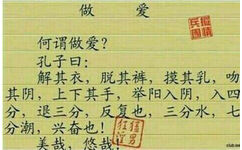 做 爱
何谓做爱?
孔子曰:
解其衣,脱其裤,摸其乳,吻
其阴,上下其手,举阳入阴,入四
分,退三分,反复也,三分水,七
分潮,兴奋也!
美哉,悠哉!